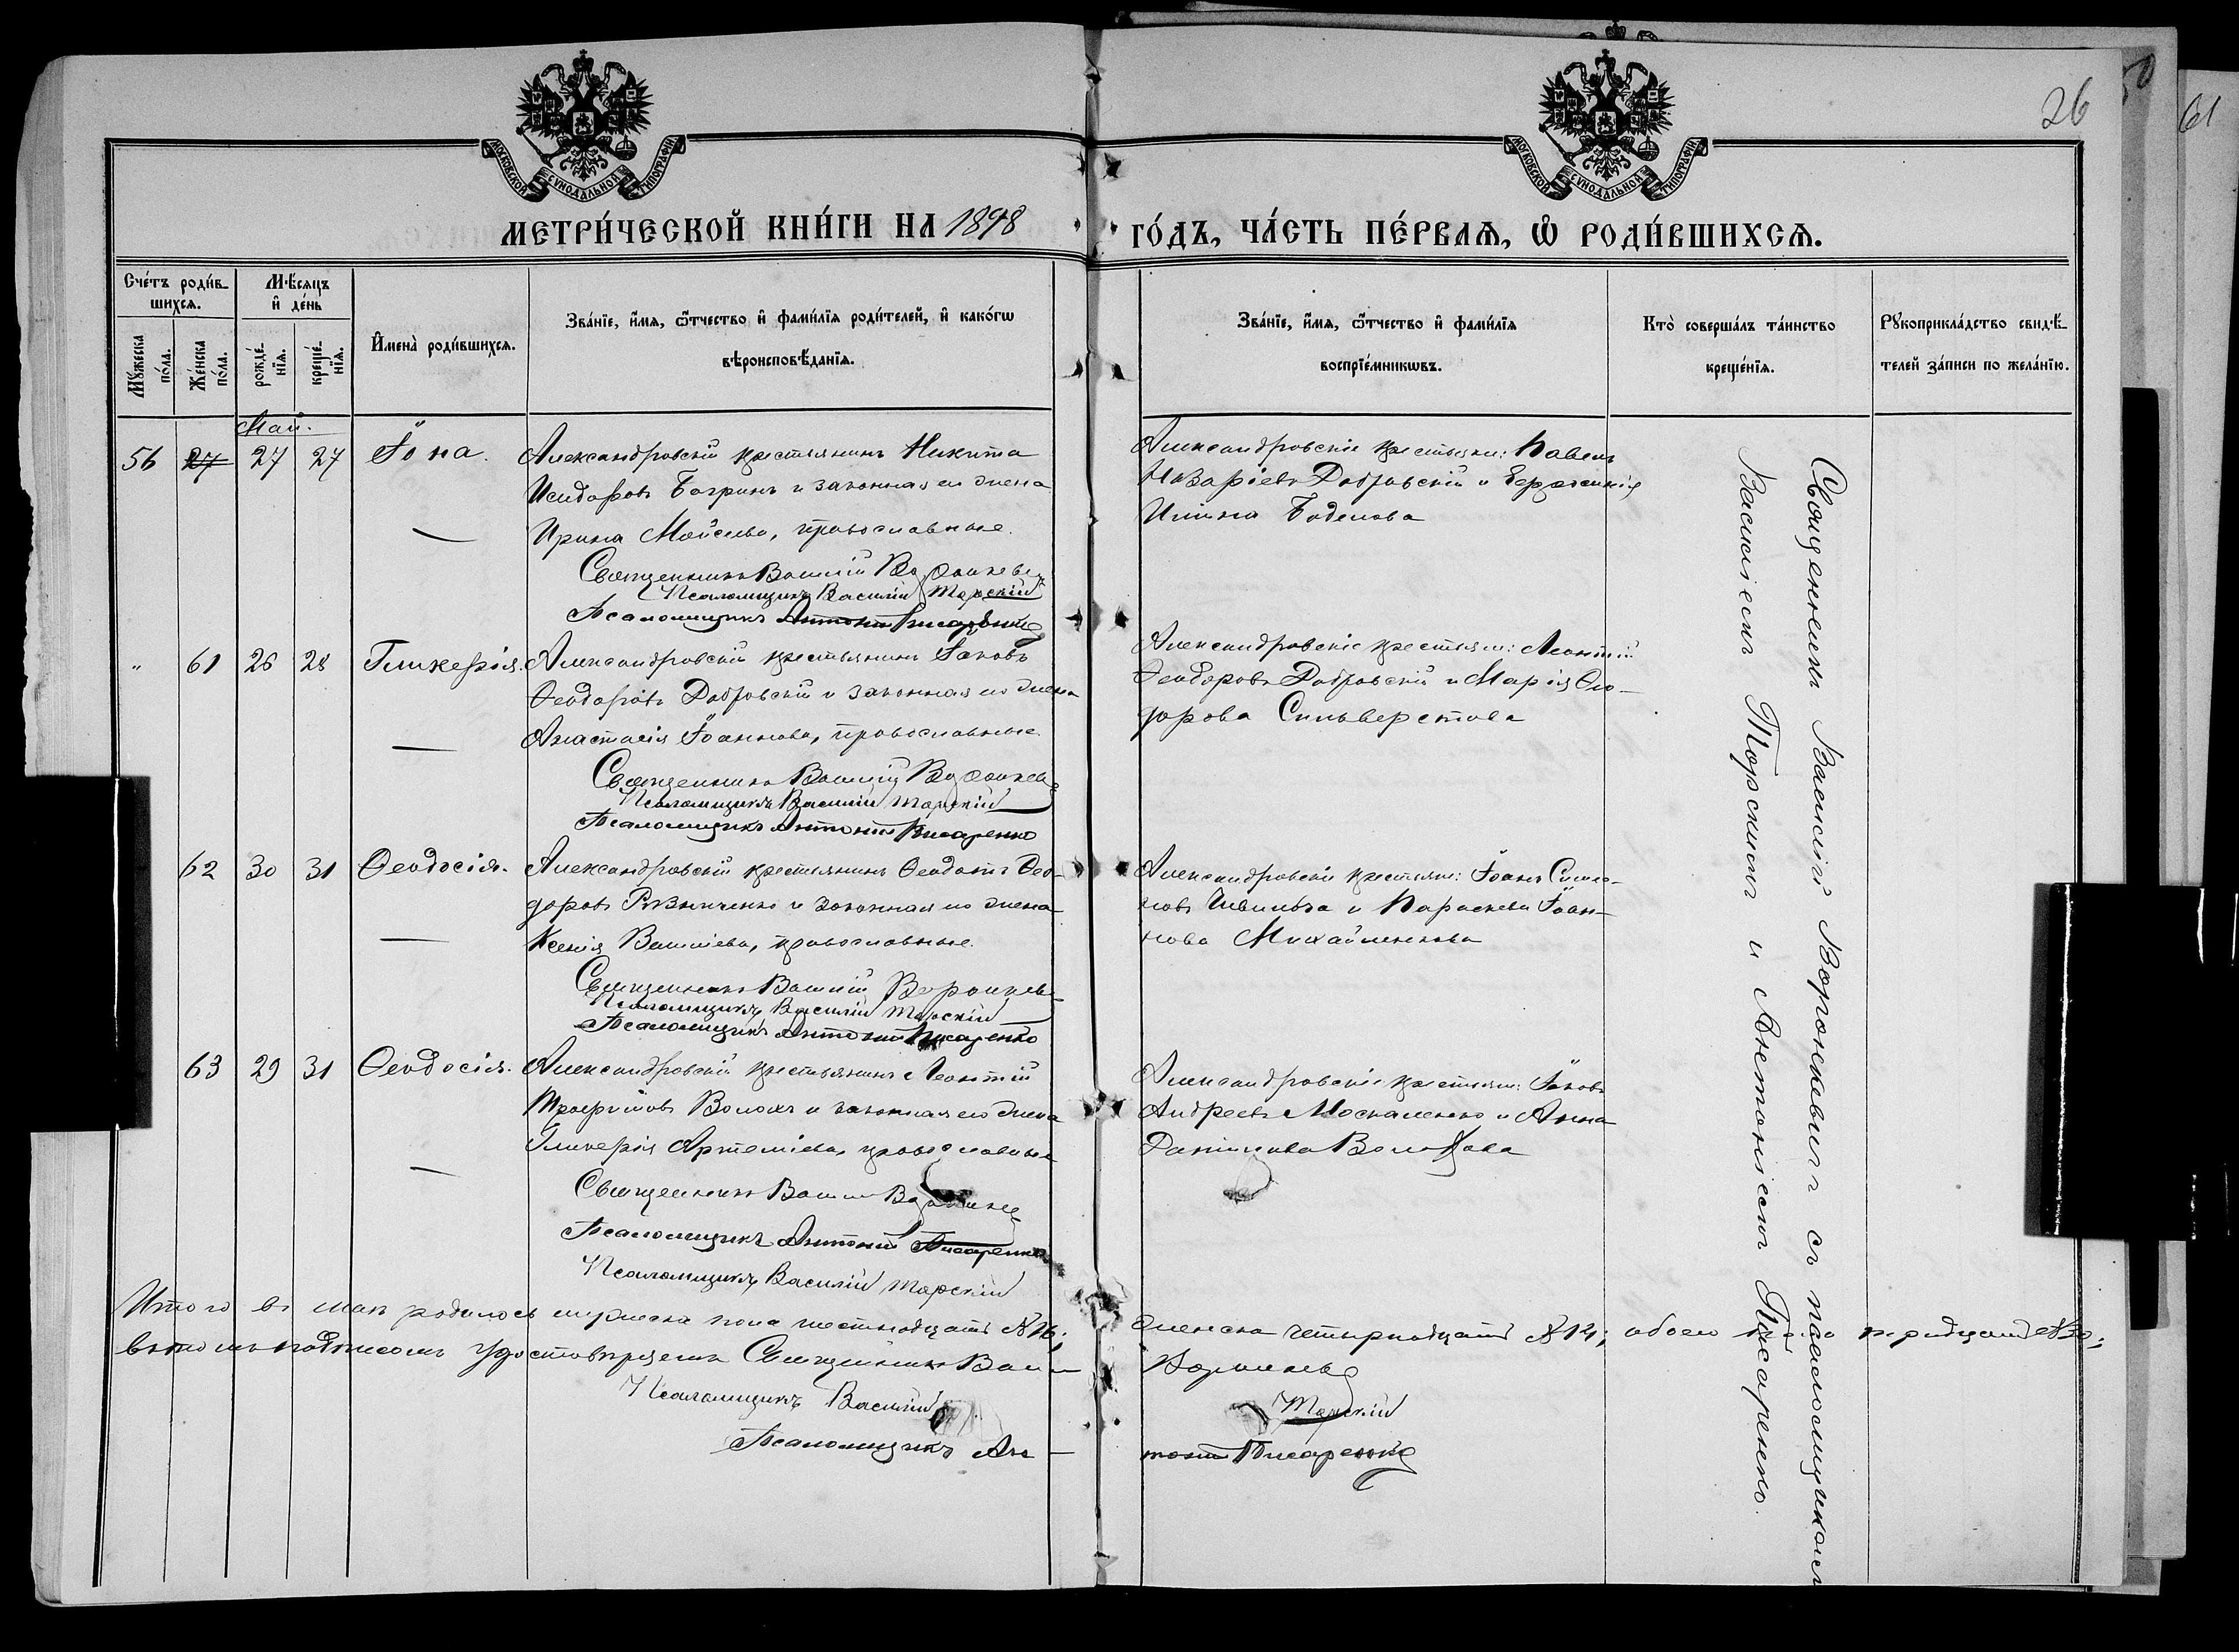 26
61
МОСКОВСКОЙ СѴНОДАЛЬНОЙ ТИПОГРАФІИ
МОСКОВСКОЙ СѴНОДАЛЬНОЙ ТИПОГРАФІИ
МЕТРИ́ЧЕСКОЙ КНИ́ГИ НА 1898 ГО́ДЪ, ЧА́СТЬ ПЕ́РВАѦ, Ѡ҆ РОДИ́ВШИХСѦ.
Сче́тъ роди́вшихсѧ.
Мѣ́сѧцъ и҆ де́нь
Мꙋ́жеска по́ла.
Же́нска по́ла.
рожде́нїѧ.
креще́нїѧ.
И҆мена̀ роди́вшихсѧ.
Зва́нїе, и҆́мѧ, ѻ҆́тчество и҆ фами́лїѧ роди́телей, и҆ како́гѡ
вѣроисповѣ́данїѧ.
Зва́нїе, и҆́мѧ, ѻ҆́тчество и҆ фами́лїѧ
воспрїе́мникѡвъ.
Кто̀ соверша́лъ та́инство
креще́нїѧ.
Рꙋкоприкла́дство свидѣ́телей за́писи по жела́нїю.
Май.
56 27 27 27 Іона. Александровскій крестьянинъ Никита
Исидоровъ Багринъ и законная его жена
Ирина Моисеева, православные.
Священникъ Василій Воронкевичъ
Псаломщикъ Василій Торскій
Псаломщикъ Антоній Писаренко
Александровскіе крестьяне: Павелъ
Назаріевъ Добровскій и
" 61 26 28 Гликерія. Александровскій крестьянинъ Іаковъ
Ѳеодоровъ Добровскій и законная его жена
Анастасія Іоаннова, православные.
Священникъ Василій Воронкевичъ
Псаломщикъ Василій Торскій
Псаломщикъ Антоній Писаренко
Александровскіе крестьяне: Леонтій
Ѳеодоровъ Добровскій и Марія Ѳео-
дорова Сильверстова
62 30 31 Ѳеодосія. Александровскій крестьянинъ Ѳеодотъ Ѳео-
доровъ Резниченко и законная его жена
Ксенія Василіева, православные.
Священникъ Василій Воронкевичъ
Псаломщикъ Василій Торскій
Псаломщикъ Антоній Писаренко
Александровскіе крестьяне: Іоанъ
и Параскева Іоан-
нова Михайленкова
63 29 31 Ѳеодосія. Александровскій крестьянинъ Леонтій
Трофимовъ Волохъ и законная его жена
Гликерія Артеміева, православные
Священникъ Василій Воронкевичъ
Псаломщикъ Антоній Писаренко
Псаломщикъ Василій Торскій
Александровскіе крестьяне: Іаковъ
Андреевъ Москаленко и Анна
Данилова
Священникъ Василій Воронкевичъ съ псаломщикомъ
Василіемъ Торскимъ и Антоніемъ Писаренко.
Итого въ маѣ родилось мужеска пола шестнадцать №16; женска четырнадцать №14; обоего пола тридцать №30;
въ томъ подписомъ удостовѣряемъ Священникъ Василій Воронкевичъ
Псаломщикъ Василій Торскій
Псаломщикъ Антоній Писаренко